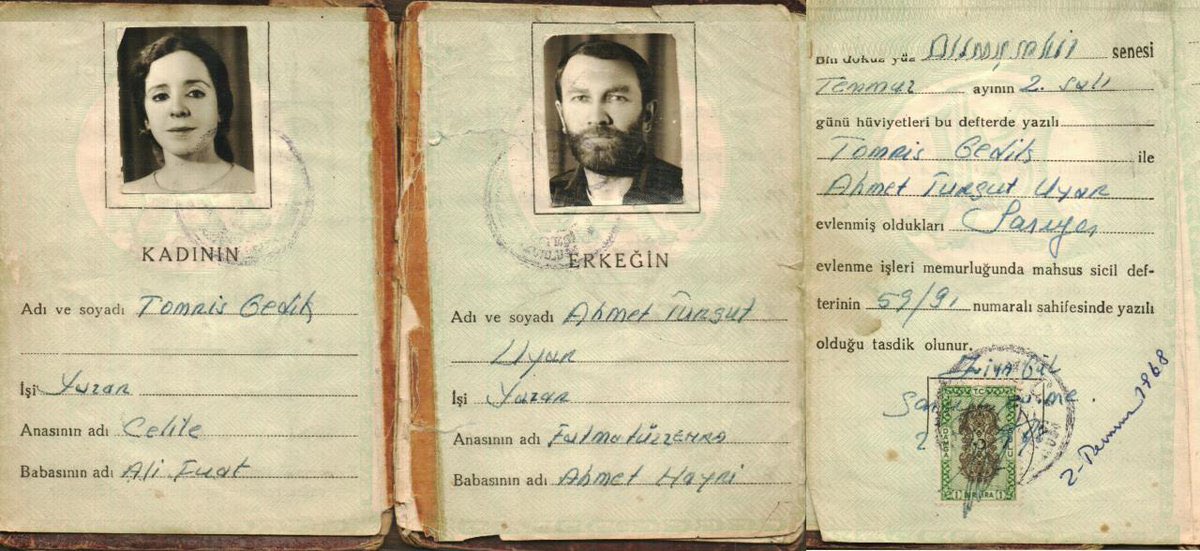 KADININ
Adı ve soyadı Tomris Gedik
İşi Yazar
Anasının adı Celile
Babasının adı Ali Fuat
ERKEĞİN
Adı ve soyadı Ahmet Turgut
Uyar
İşi Yazar
Anasının adı Fatmatüzzehra
Babasının adı Ahmet Hayri
Bin dokuz yüz Altmışsekiz senesi
Temmuz ayının 2. salı
günü hüviyetleri bu defterde yazılı
Tomris Gedik ile
Ahmet Turgut Uyar
evlenmiş oldukları Sarıyer
evlenme işleri memurluğunda mahsus sicil def-
terinin 59/91 numaralı sahifesinde yazılı
olduğu tasdik olunur.
Ziya Gül
1 LİRA 1